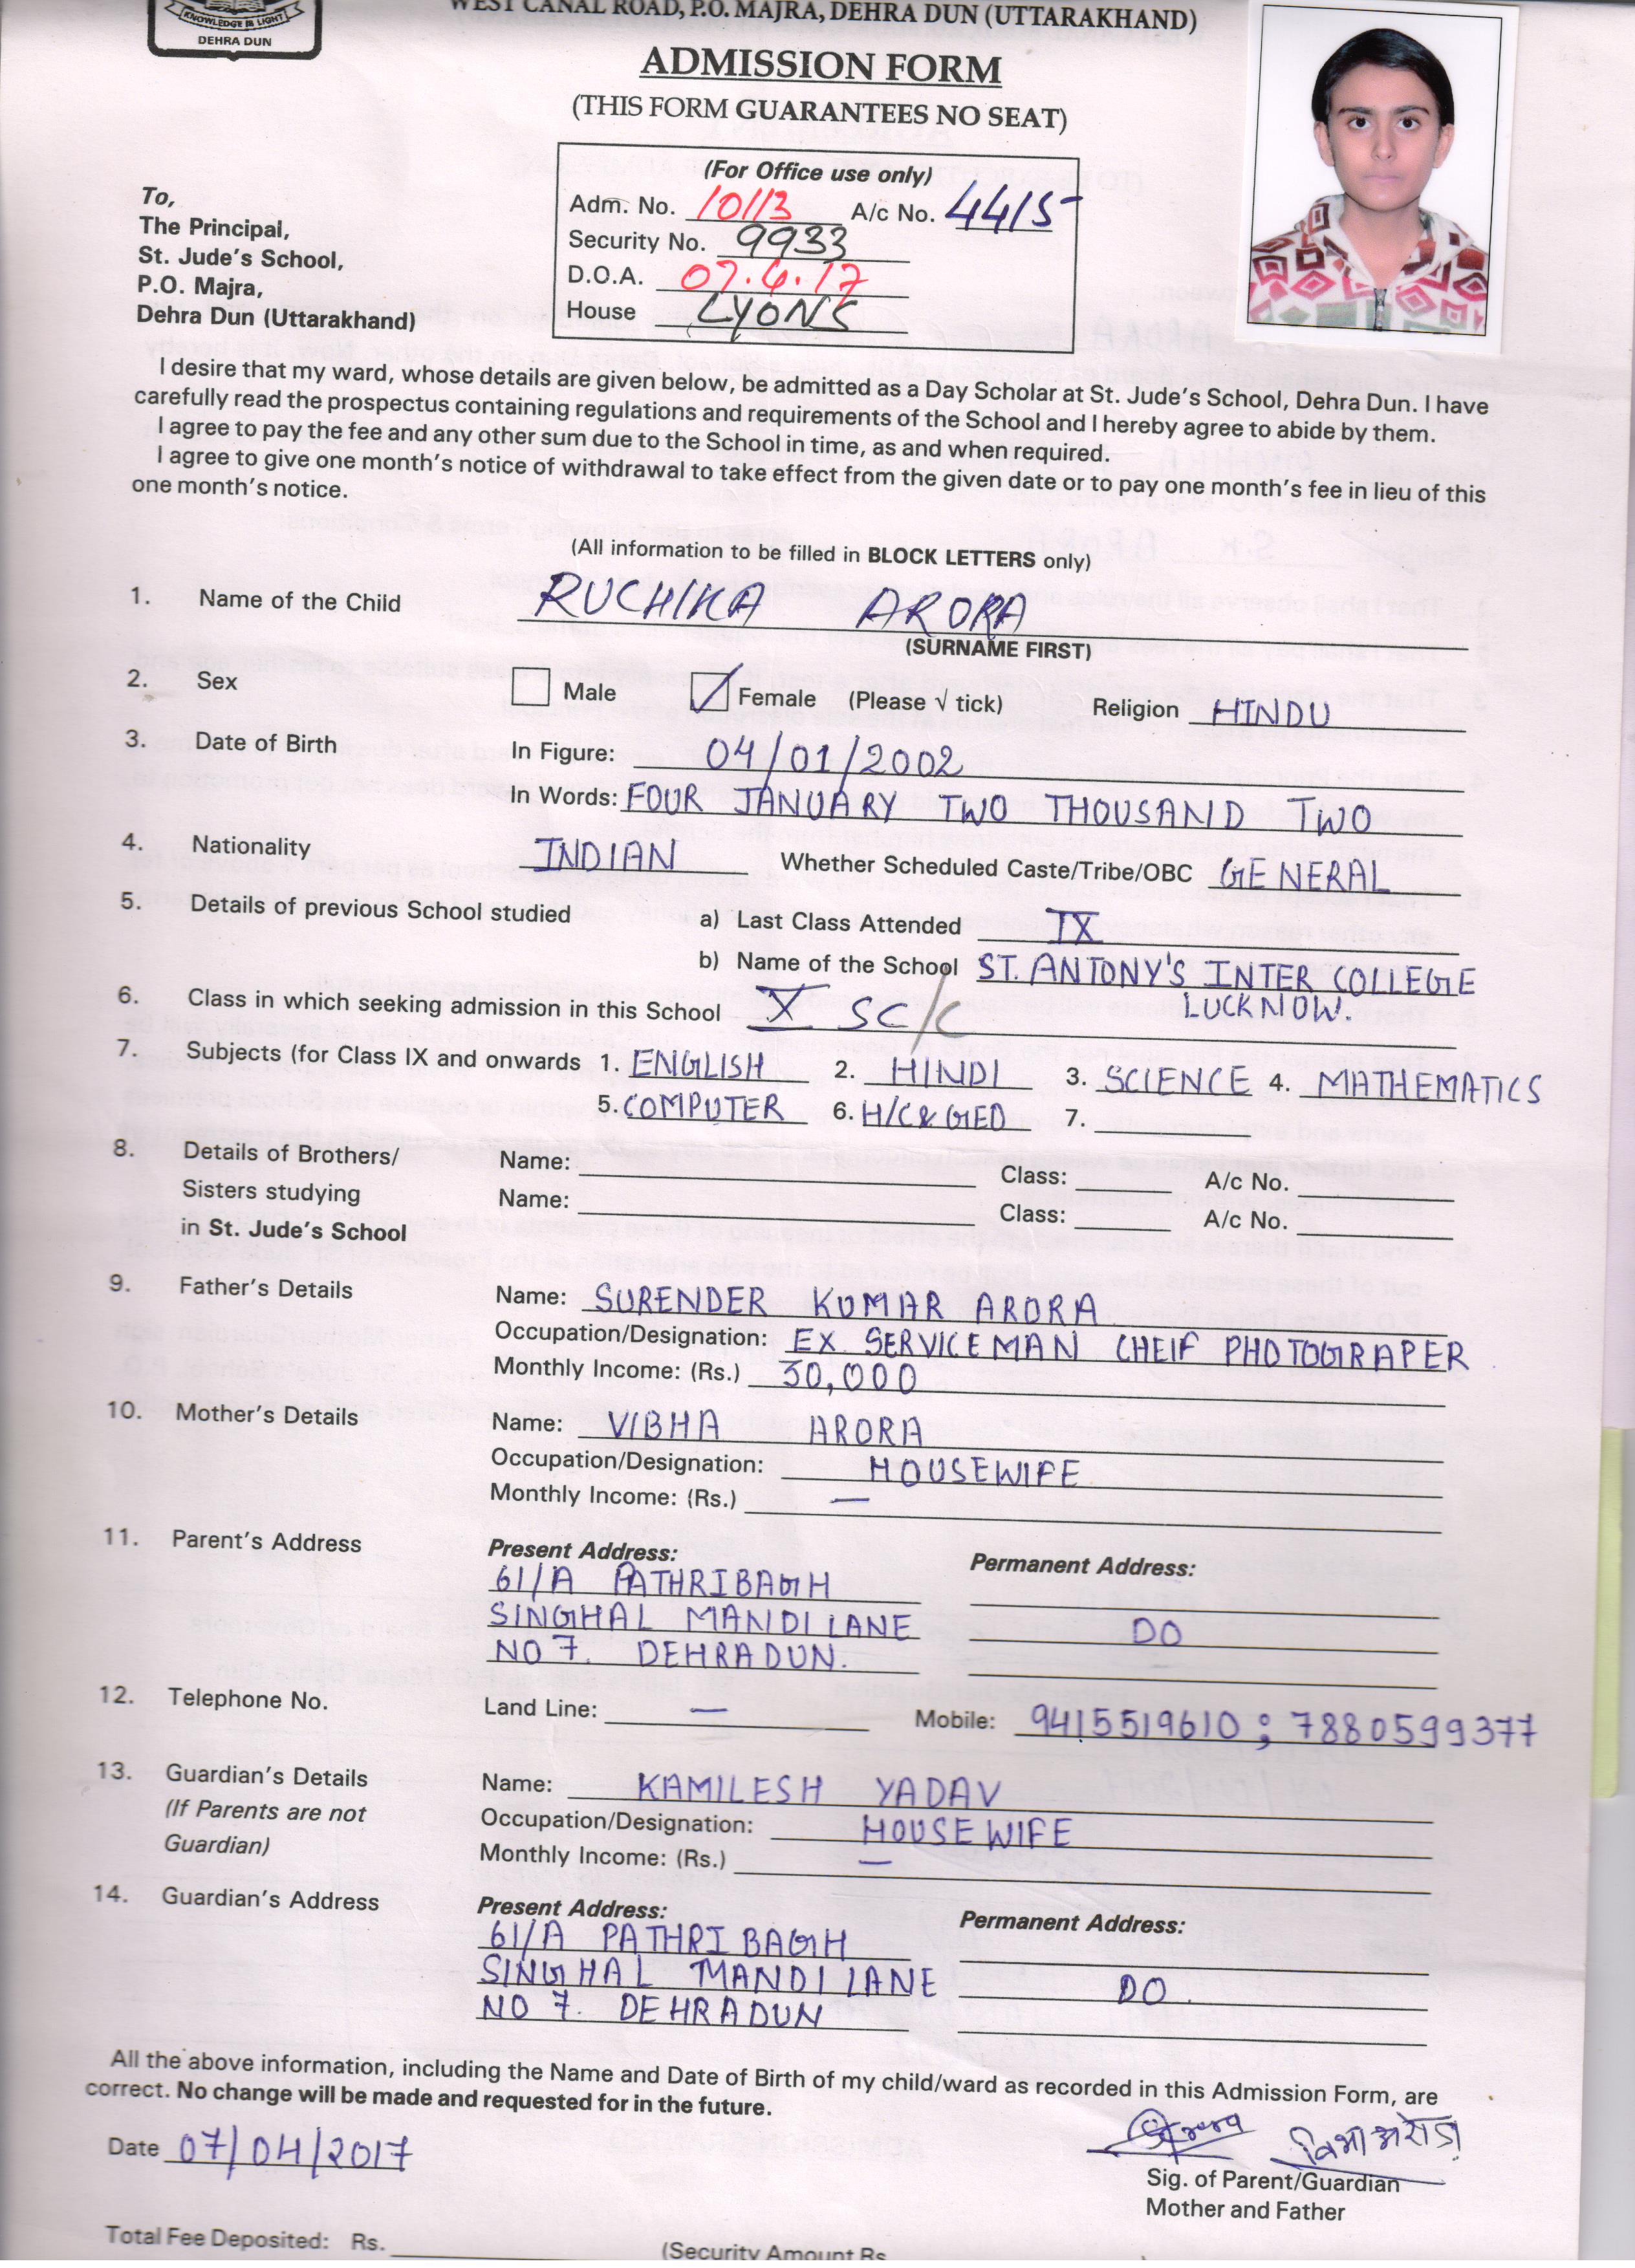 KNOWLEDGE IS LIGHT
DEHRA DUN
WEST CANAL ROAD, P.O. MAJRA, DEHRA DUN (UTTARAKHAND)
ADMISSION FORM
(THIS FORM GUARANTEES NO SEAT)
(For Office use only)
Adm. No. 10113 A/c No. 4415
Security No. 9933
D.O.A. 07.4.17
House LYONS
To,
The Principal,
St. Jude's School,
P.O. Majra,
Dehra Dun (Uttarakhand)
I desire that my ward, whose details are given below, be admitted as a Day Scholar at St. Jude's School, Dehra Dun. I have
carefully read the prospectus containing regulations and requirements of the School and I hereby agree to abide by them.
I agree to pay the fee and any other sum due to the School in time, as and when required.
I agree to give one month's notice of withdrawal to take effect from the given date or to pay one month's fee in lieu of this
one month's notice.
(All information to be filled in BLOCK LETTERS only)
1. Name of the Child RUCHIKA ARORA
(SURNAME FIRST)
2. Sex Male Female (Please √ tick) Religion HINDU
3. Date of Birth In Figure: 04/01/2002
In Words: FOUR JANUARY TWO THOUSAND TWO
4. Nationality INDIAN Whether Scheduled Caste/Tribe/OBC GENERAL
5. Details of previous School studied a) Last Class Attended IX
b) Name of the School ST. ANTONY'S INTER COLLEGE
LUCKNOW.
6. Class in which seeking admission in this School X SC/C
7. Subjects (for Class IX and onwards 1. ENGLISH 2. HINDI 3. SCIENCE 4. MATHEMATICS
5. COMPUTER 6. H/C & GED 7.
8. Details of Brothers/ Name: Class: A/c No.
Sisters studying Name: Class: A/c No.
in St. Jude's School
9. Father's Details Name: SURENDER KUMAR ARORA
Occupation/Designation: EX SERVICEMAN CHEIF PHOTOGRAPER
Monthly Income: (Rs.) 30,000
10. Mother's Details Name: VIBHA ARORA
Occupation/Designation: HOUSEWIFE
Monthly Income: (Rs.) —
11. Parent's Address Present Address: Permanent Address:
61/A PATHRIBAGH
SINGHAL MANDI LANE DO
NO 7. DEHRADUN.
12. Telephone No. Land Line: — Mobile: 9415519610 ; 7880599377
13. Guardian's Details Name: KAMILESH YADAV
(If Parents are not Occupation/Designation: HOUSEWIFE
Guardian) Monthly Income: (Rs.) —
14. Guardian's Address Present Address: Permanent Address:
61/A PATHRI BAGH
SINGHAL MANDI LANE DO.
NO 7. DEHRADUN
All the above information, including the Name and Date of Birth of my child/ward as recorded in this Admission Form, are
correct. No change will be made and requested for in the future.
Date 07/04/2017
विभा अरोडा
Sig. of Parent/Guardian
Mother and Father
Total Fee Deposited: Rs. (Security Amount Rs